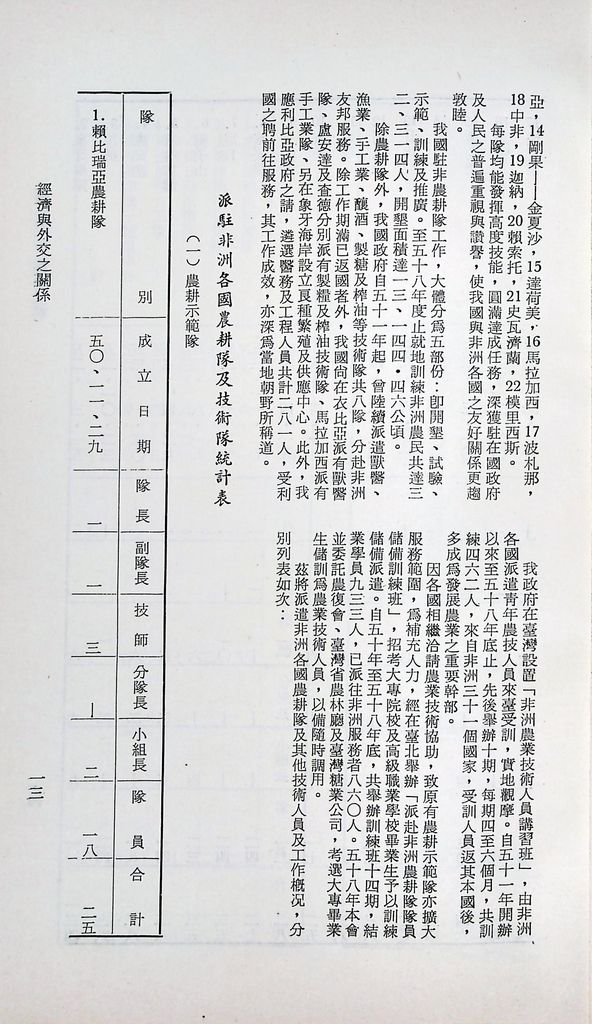 亞，14剛果——金夏沙，15達荷美，16馬拉加西，17波札那，
18中非，19迦納，20賴索托，21史瓦濟蘭，22模里西斯。
每隊均能發揮高度技能，圓滿達成任務，深獲駐在國政府
及人民之普遍重視與讚譽，使我國與非洲各國之友好關係更趨
敦睦。
我國駐非農耕隊工作，大體分爲五部份：卽開墾、試驗、
示範、訓練及推廣。至五十八年度止就地訓練非洲農民共達三
二、三一四人，開墾面積達一三、一四四·四六公頃。
除農耕隊外，我國政府自五十一年起，曾陸續派遣獸醫、
漁業、手工業、釀酒、製糖及榨油等技術隊共八隊，分赴非洲
友邦服務。除工作期滿已返國者外，我國尙在衣比亞派有獸醫
隊、盧安達及查德分別派有製糧及榨油技術隊、馬拉加西派有
手工業隊、另在象牙海岸設立良種繁殖及供應中心。此外，我
應利比亞政府之請，遴選醫務及工程人員共計二八一人，受利
國之聘前往服務，其工作成效，亦深爲當地朝野所稱道。
我政府在臺灣設置「非洲農業技術人員講習班」，由非洲
各國派遣靑年農技人員來臺受訓，實地觀摩。自五十一年開辦
以來至五十八年底止，先後舉辦十期，每期四至六個月，共訓
練四六二人，來自非洲三十一個國家，受訓人員返其本國後，
多成爲發展農業之重要幹部。
因各國相繼洽請農業技術協助，致原有農耕示範隊亦擴大
服務範圍，爲補充人力，經在臺北舉辦「派赴非洲農耕隊隊員
儲備訓練班」，招考大專院校及高級職業學校畢業生予以訓練
儲備派遣。自五十年至五十八年底，共舉辦訓練班十四期，結
業學員九三三人，已派往非洲服務者八六〇人。五十八年本會
並委託農復會、臺灣省農林廳及臺灣糖業公司，考選大專畢業
生儲訓爲農業技術人員，以備隨時調用。
茲將派遣非洲各國農耕隊及其他技術人員及工作槪況，分
別列表如次：
派駐非洲各國農耕隊及技術隊統計表
（一）農耕示範隊
隊別 成立日期 隊長 副隊長 技師 分隊長 小組長 隊員 合計
1.賴比瑞亞農耕隊 五〇、一一、二九 一 一 三 — 二 一八 二五
經濟與外交之關係
一三